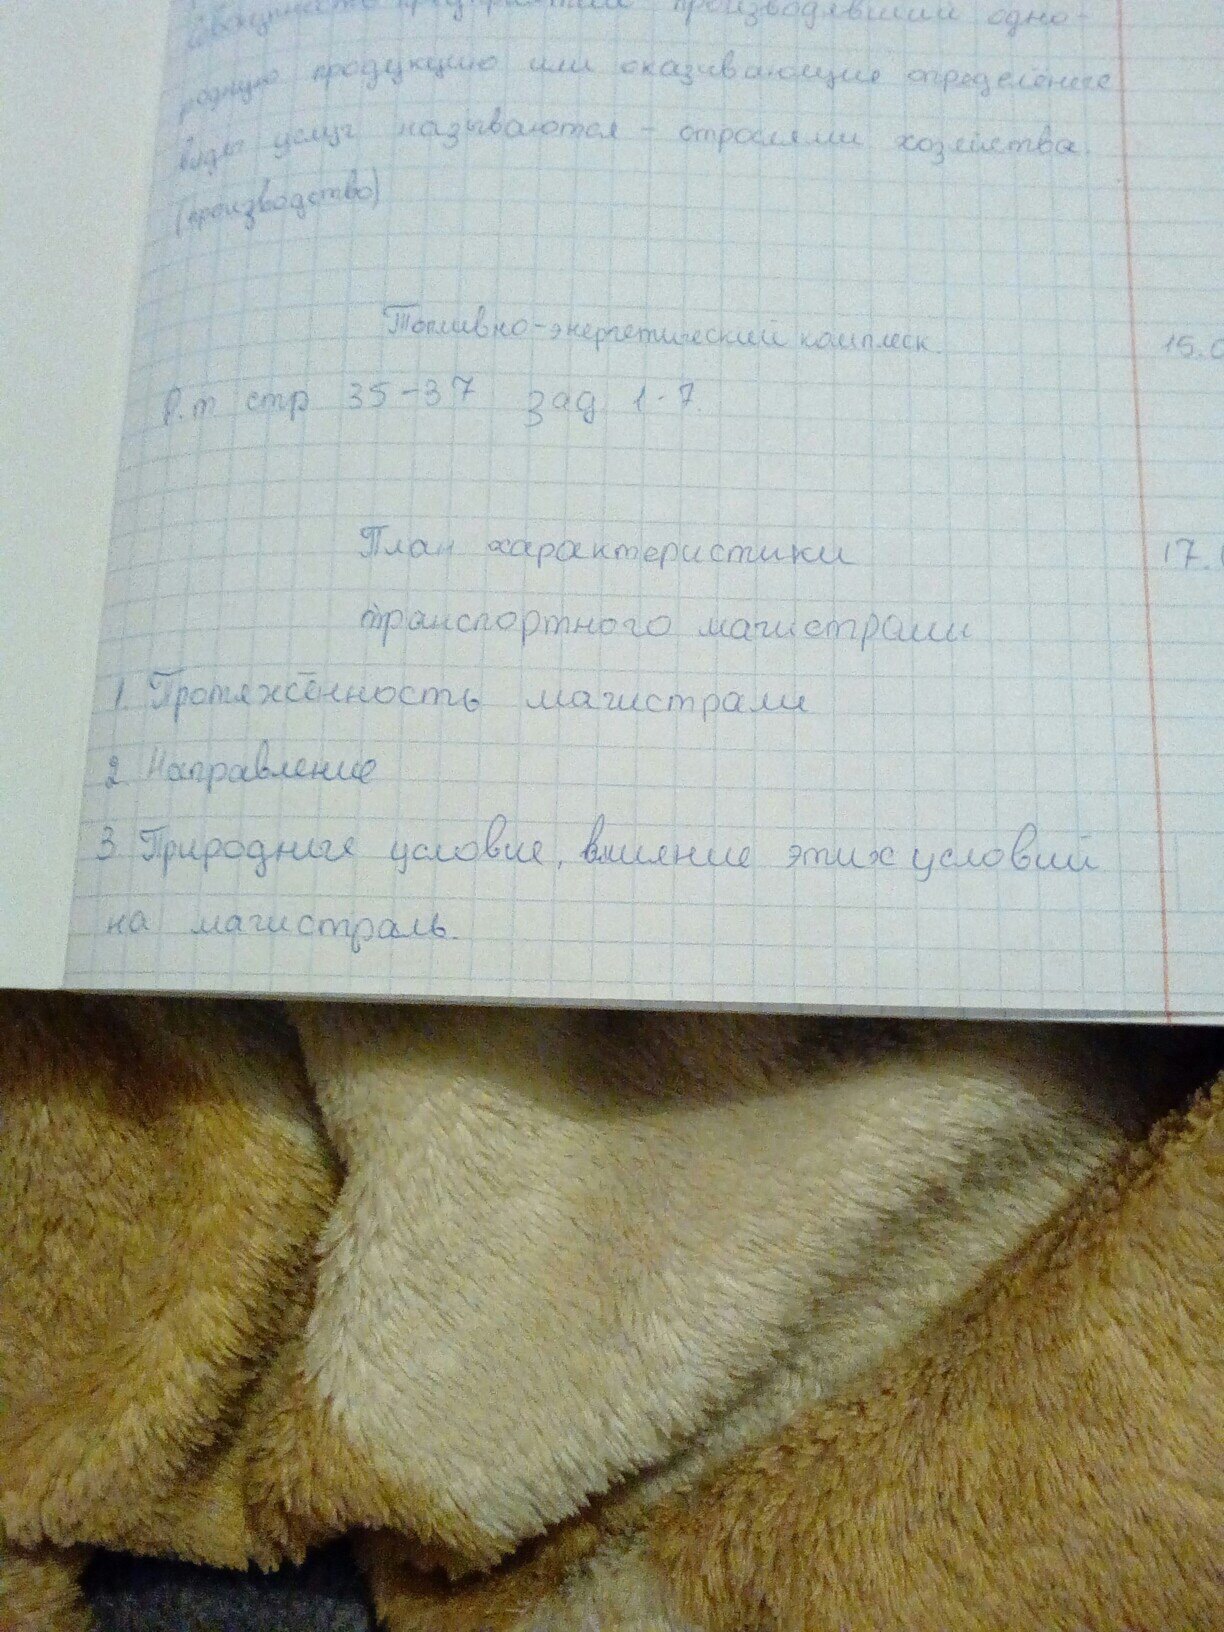 совокупность предприятий производявший одно-
родную продукцию или оказивающие определёные
виды услуг называются - отраслями хозяйства.
(производство)
Топливно-энергетический комплекск.
15.0
Р.т стр 35-37 зад 1-7.
План характеристики
17.
транспортного магистрали
1. Протяжённость магистрали
2 Направление
3 Природные условие, влияние этих условий
на магистраль.